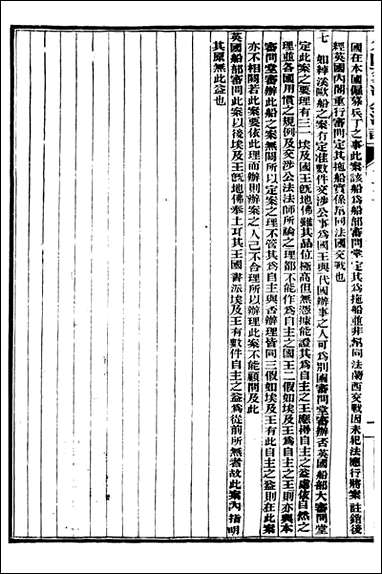 國在本國僱募兵丁之事此案該船爲船部審問堂定其爲拖船並非幫同法蘭西交戰因未犯法應行將案註銷後
經英國內閣重行審問定其拖船實係幫同法國交戰也
七 如綽漢歐船之案有定准數件交涉公事爲國王與代國辦事之人可爲別國審問堂審辦否英國船部大審問堂
定此案之要理有三一埃及國王旣地佛雖其品位極高但無憑據能證其爲自主之王應得自主之益處依自然之
理並各國用慣之規例及交涉公法法師所論之理都不能作爲自主之國王二假如埃及王爲自主之王則亦與本
審問堂審辦此船之案無關所以定案之理不管其爲自主與否辦理皆同三假如埃及王有此自主之益則在此案
亦不相關若此案要依此理而辦則辦案之人已不合理所以辦理此案不能顧問及此
英國船部審問此案以後埃及王旣地佛奉土耳其王國書派埃及王有數件自主之益爲從前所無者故此案內指明
其原無此益也